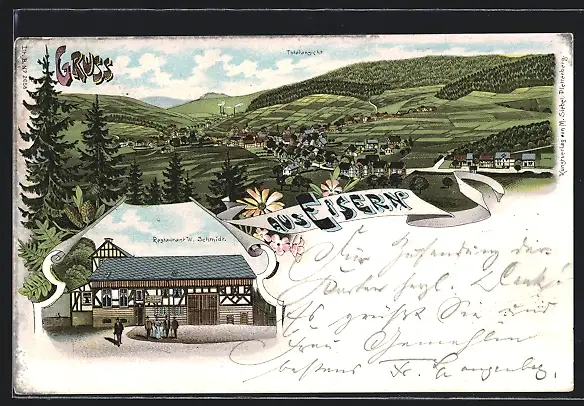 GRUSS
Totalansicht
AUS EISERN
Restaurant W. Schmidt.
Kunstverlag von M. Siebel, Plettenberg.
Für Zusendung der
Karten herzl. Dank!
Es grüßt Sie und
Frau Gemahlin
bestens Fr.